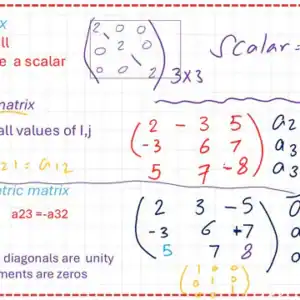 ix
ll
e a scalar
2 0 0
0 2 0
0 0 2
3x3
Scalar =
matrix
all values of I,j
21 = a12
2 - 3 5
-3 6 7
5 7 -8
a2
a3
a3
tric matrix
a23 =-a32
2 3 -5
-3 6 +7
5 7 8
diagonals are unity
ments are zeros
1 0 0
0 1 0